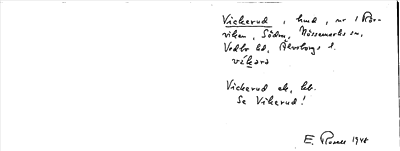 Vickerud, hmd, nr i Kor-
viken, Södra, Nössemarks sn,
Vedbo hd, Älvsborgs l.
vikərə
Vickerud ek, hb.
Se Vikerud!
E. Rosell 1948